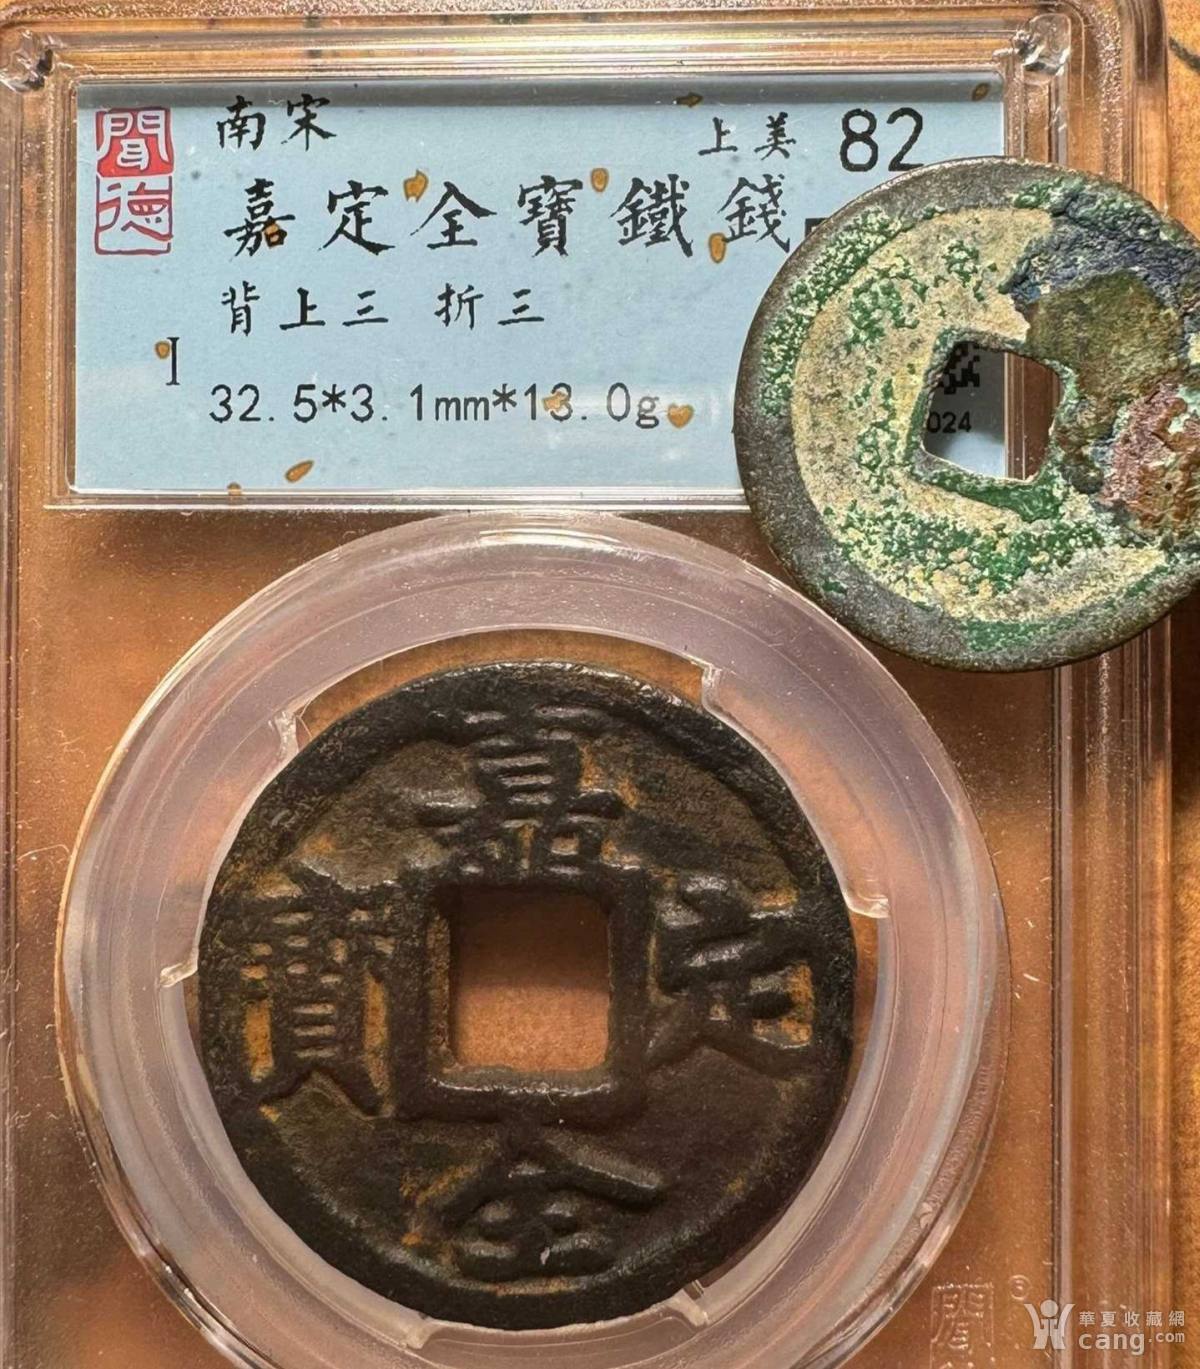 聞德
南宋
上美 82
嘉定全寶鐵錢
背上三 折三
32.5*3.1mm*13.0g
024
嘉定全寶
聞
華夏收藏網
cang.com